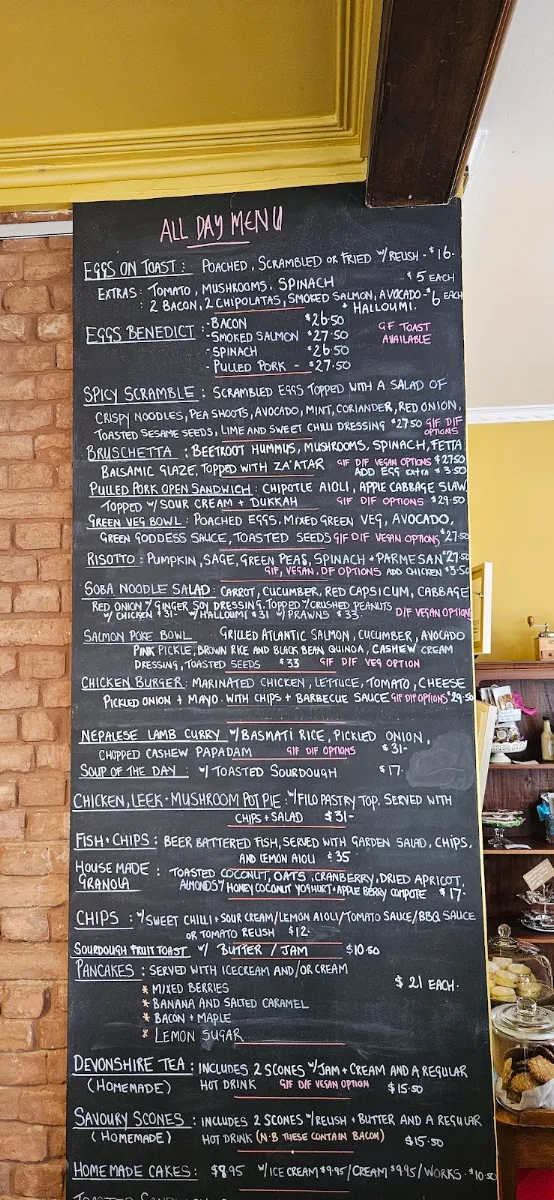 ALL DAY MENU
EGGS ON TOAST : POACHED, SCRAMBLED OR FRIED W/ RELISH - $16-
EXTRAS : TOMATO, MUSHROOMS, SPINACH - $5 EACH
: 2 BACON, 2 CHIPOLATAS, SMOKED SALMON, AVOCADO - $6 EACH
+ HALLOUMI.
EGGS BENEDICT : - BACON $26.50
- SMOKED SALMON $27.50
- SPINACH $26.50
- PULLED PORK - $27.50
GF TOAST
AVAILABLE
SPICY SCRAMBLE : SCRAMBLED EGGS TOPPED WITH A SALAD OF
CRISPY NOODLES, PEA SHOOTS, AVOCADO, MINT, CORIANDER, RED ONION,
TOASTED SESAME SEEDS, LIME AND SWEET CHILLI DRESSING $27.50 G/F D/F
OPTIONS
BRUSCHETTA : BEETROOT HUMMUS, MUSHROOMS, SPINACH, FETTA
BALSAMIC GLAZE, TOPPED WITH ZA'ATAR G/F D/F VEGAN OPTIONS $27.50
ADD EGG EXTRA $3.50
PULLED PORK OPEN SANDWICH : CHIPOTLE AIOLI, APPLE CABBAGE SLAW,
TOPPED W/ SOUR CREAM + DUKKAH G/F D/F OPTIONS $29.50
GREEN VEG BOWL : POACHED EGGS, MIXED GREEN VEG, AVOCADO,
GREEN GODDESS SAUCE, TOASTED SEEDS G/F D/F VEGAN OPTIONS $27.50
RISOTTO : PUMPKIN, SAGE, GREEN PEAS, SPINACH + PARMESAN $27.50
G/F, VEGAN, D/F OPTIONS ADD CHICKEN $3.50
SOBA NOODLE SALAD : CARROT, CUCUMBER, RED CAPSICUM, CABBAGE
RED ONION W/ GINGER SOY DRESSING. TOPPED W/ CRUSHED PEANUTS
W/ CHICKEN $31- W/ HALLOUMI $31 W/ PRAWNS $33. D/F VEGAN OPTION
SALMON POKE BOWL GRILLED ATLANTIC SALMON, CUCUMBER, AVOCADO
PINK PICKLE, BROWN RICE AND BLACK BEAN QUINOA, CASHEW CREAM
DRESSING, TOASTED SEEDS $33 G/F D/F VEG OPTION
CHICKEN BURGER : MARINATED CHICKEN, LETTUCE, TOMATO, CHEESE
PICKLED ONION + MAYO. WITH CHIPS + BARBECUE SAUCE G/F D/F OPTIONS $29.50
NEPALESE LAMB CURRY W/ BASMATI RICE, PICKLED ONION,
CHOPPED CASHEW PAPADAM G/F D/F OPTIONS $31-
SOUP OF THE DAY : W/ TOASTED SOURDOUGH $17.
CHICKEN, LEEK + MUSHROOM POT PIE : W/ FILO PASTRY TOP. SERVED WITH
CHIPS + SALAD $31-
FISH + CHIPS : BEER BATTERED FISH, SERVED WITH GARDEN SALAD, CHIPS,
AND LEMON AIOLI $35
HOUSE MADE GRANOLA : TOASTED COCONUT, OATS, CRANBERRY, DRIED APRICOT,
ALMONDS W/ HONEY COCONUT YOGHURT + APPLE BERRY COMPOTE $17.
CHIPS : W/ SWEET CHILLI + SOUR CREAM / LEMON AIOLI / TOMATO SAUCE / BBQ SAUCE
OR TOMATO RELISH $12.
SOURDOUGH FRUIT TOAST W/ BUTTER / JAM $10.50
PANCAKES : SERVED WITH ICECREAM AND/OR CREAM
* MIXED BERRIES $21 EACH.
* BANANA AND SALTED CARAMEL
* BACON + MAPLE
* LEMON SUGAR
DEVONSHIRE TEA : INCLUDES 2 SCONES W/ JAM + CREAM AND A REGULAR
(HOMEMADE) HOT DRINK G/F D/F VEGAN OPTION $15.50
SAVOURY SCONES : INCLUDES 2 SCONES W/ RELISH + BUTTER AND A REGULAR
(HOMEMADE) HOT DRINK (N.B THESE CONTAIN BACON) $15.50
HOMEMADE CAKES : $8.95 W/ ICE CREAM $9.95 / CREAM $9.95 / WORKS - $10.50